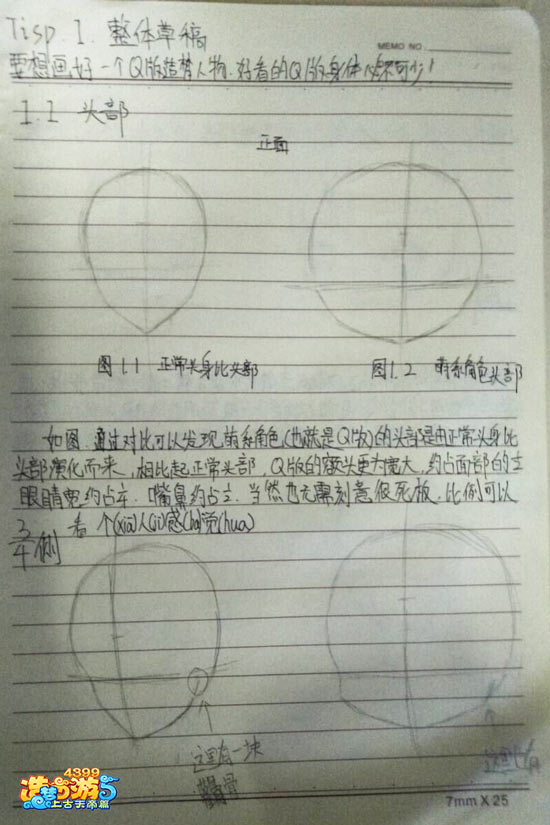 Tisp.1. 整体草稿
MEMO NO.
要想画好一个Q版造梦人物.好看的Q版身体必不可少!
1.1 头部
正面
图1.1 正常头身比头部
图1.2 萌系角色头部
如图.通过对比可以发现萌系角色(也就是Q版)的头部是由正常头身比
头部演化而来,相比起正常头部,Q版的额头更为宽大,约占面部的
眼睛宽约占 嘴鼻约占 当然也无需刻意很死板.比例可以
看 个(xia)人(ji)感(ba)觉(hua)
3/4侧
这里有一块
骨
这里也有
4399
造梦西游5
上古天帝篇
7mm X 25